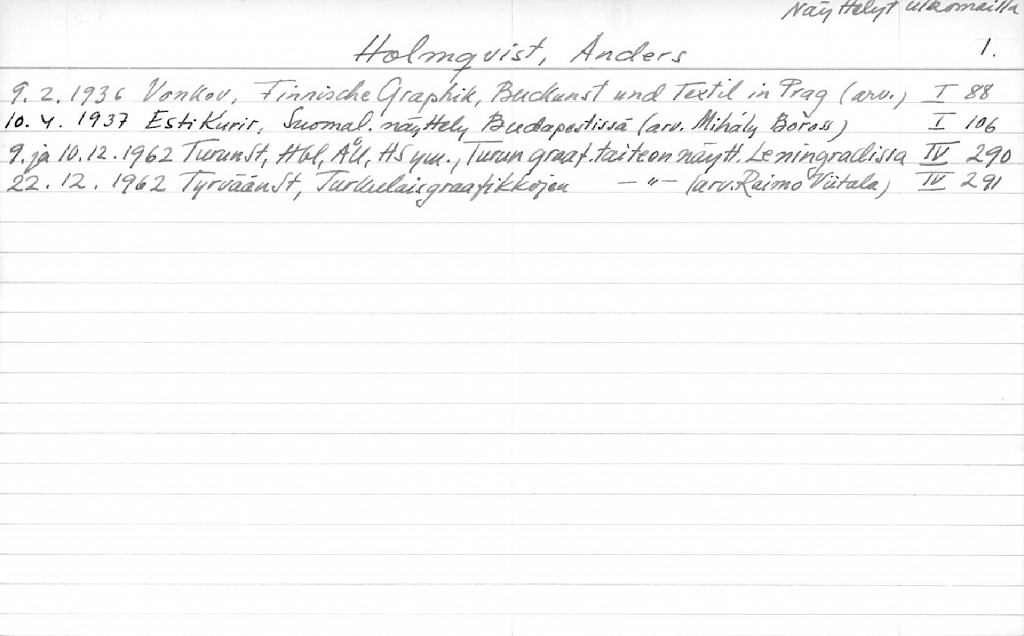 Näyttelyt ulkomailla
1.
Holmqvist, Anders
9.2.1936 Vonkov, Finnische Graphik, Buckunst und Textil in Prag (arv.) I 88
10.4.1937 Esti Kurir, Suomal. näyttely Budapestissä (arv. Mihály Bořoss) I 106
9. ja 10.12.1962 TurunSt, Hbl, ÅU, HS ym., Turun graaf. taiteen näytt. Leningradissa IV 290
22.12.1962 TyrväänSt, Turkulaisgraafikkojen —"— (arv. Raimo Viitala) IV 291